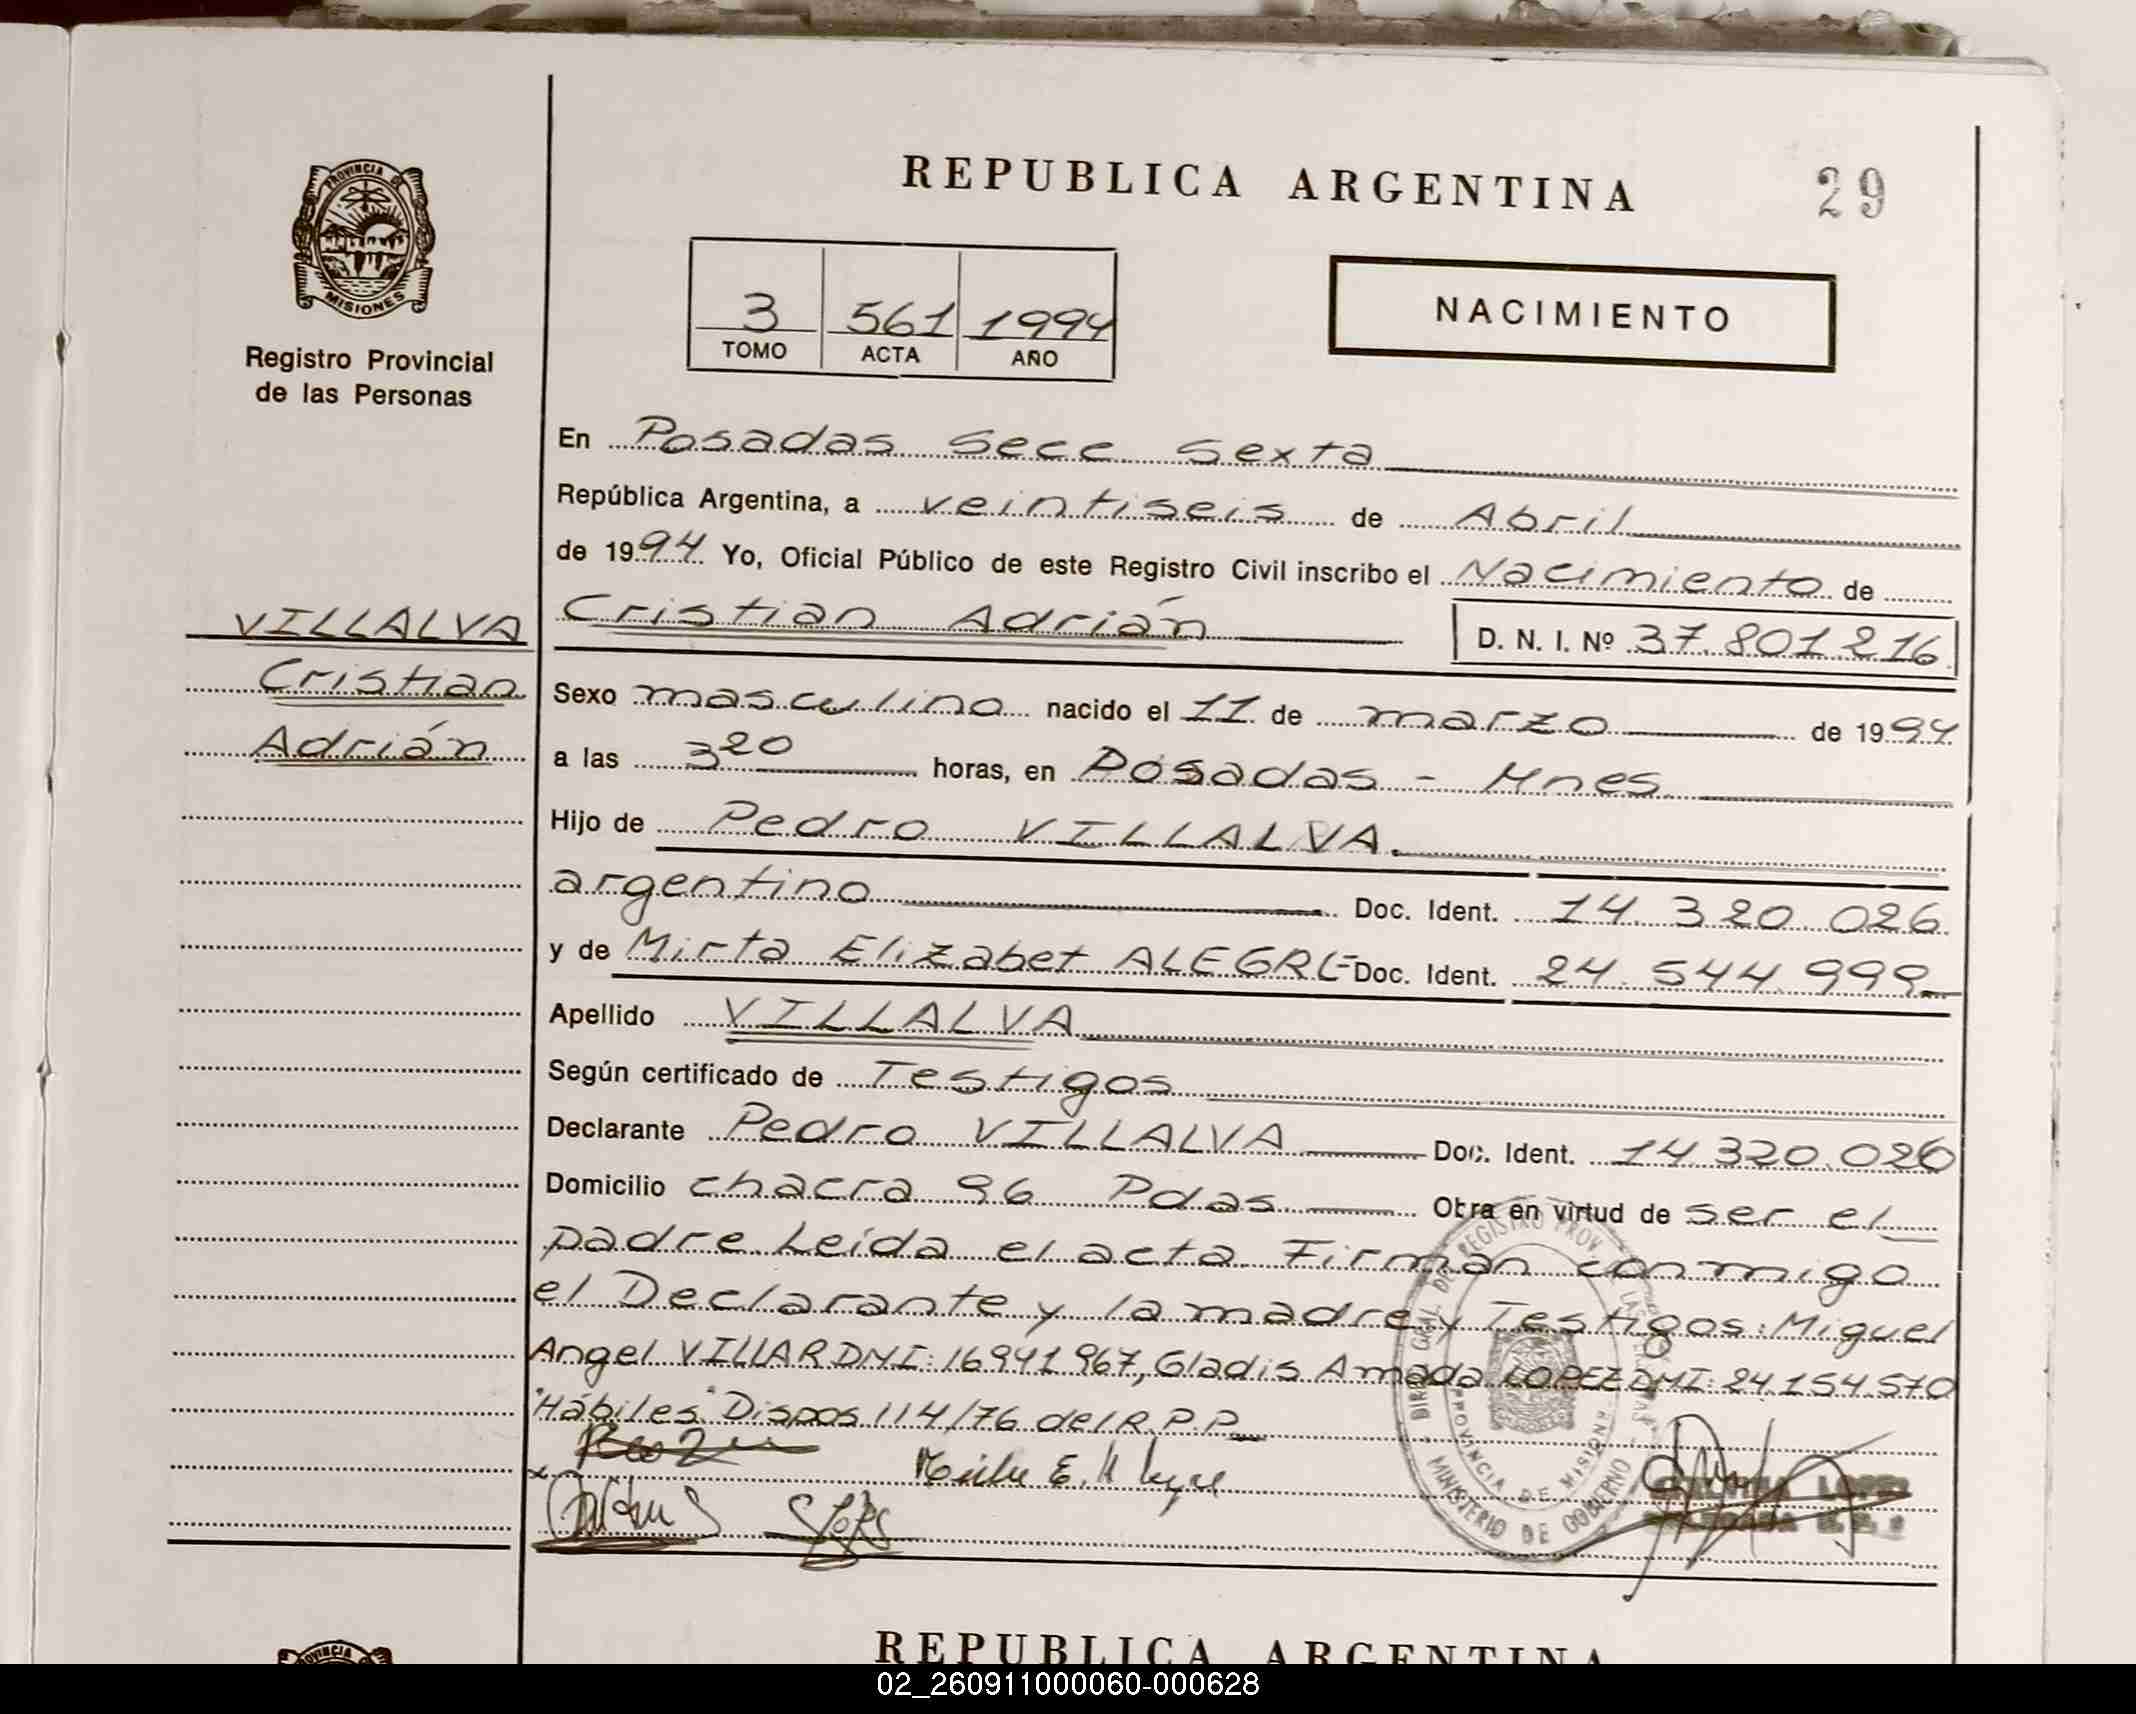 REPUBLICA ARGENTINA
29
PROVINCIA DE
MISIONES
Registro Provincial
de las Personas
3 561 1994
TOMO ACTA AÑO
NACIMIENTO
En Posadas Secc Sexta
República Argentina, a veintiseis de Abril
de 1994 Yo, Oficial Público de este Registro Civil inscribo el Nacimiento de
VILLALVA
Cristian
Adrián
Cristian Adrián D. N. I. Nº 37.801216
Sexo masculino nacido el 11 de marzo de 1994
a las 3 20 horas, en Posadas - Mnes
Hijo de Pedro VILLALVA.
argentino Doc. Ident. 14.320.026
y de Mirta Elizabet ALEGRE Doc. Ident. 24.544.999
Apellido VILLALVA
Según certificado de Testigos
Declarante Pedro VILLALVA Doc. Ident. 14.320.026
Domicilio chacra 96 Pdas Obra en virtud de ser el
padre Leída el acta Firman conmigo
el Declarante y la madre y Testigos: Miguel
Angel VILLAR DNI: 16941967, Gladis Amada LOPEZ DNI: 24.154.570
"Hábiles" Dispos 114/76 del R.P.P.
REGISTRO PROV.
PROVINCIA DE MISIONES
MINISTERIO DE GOBIERNO
LOPEZ
REPUBLICA ARGENTINA
02_260911000060-000628